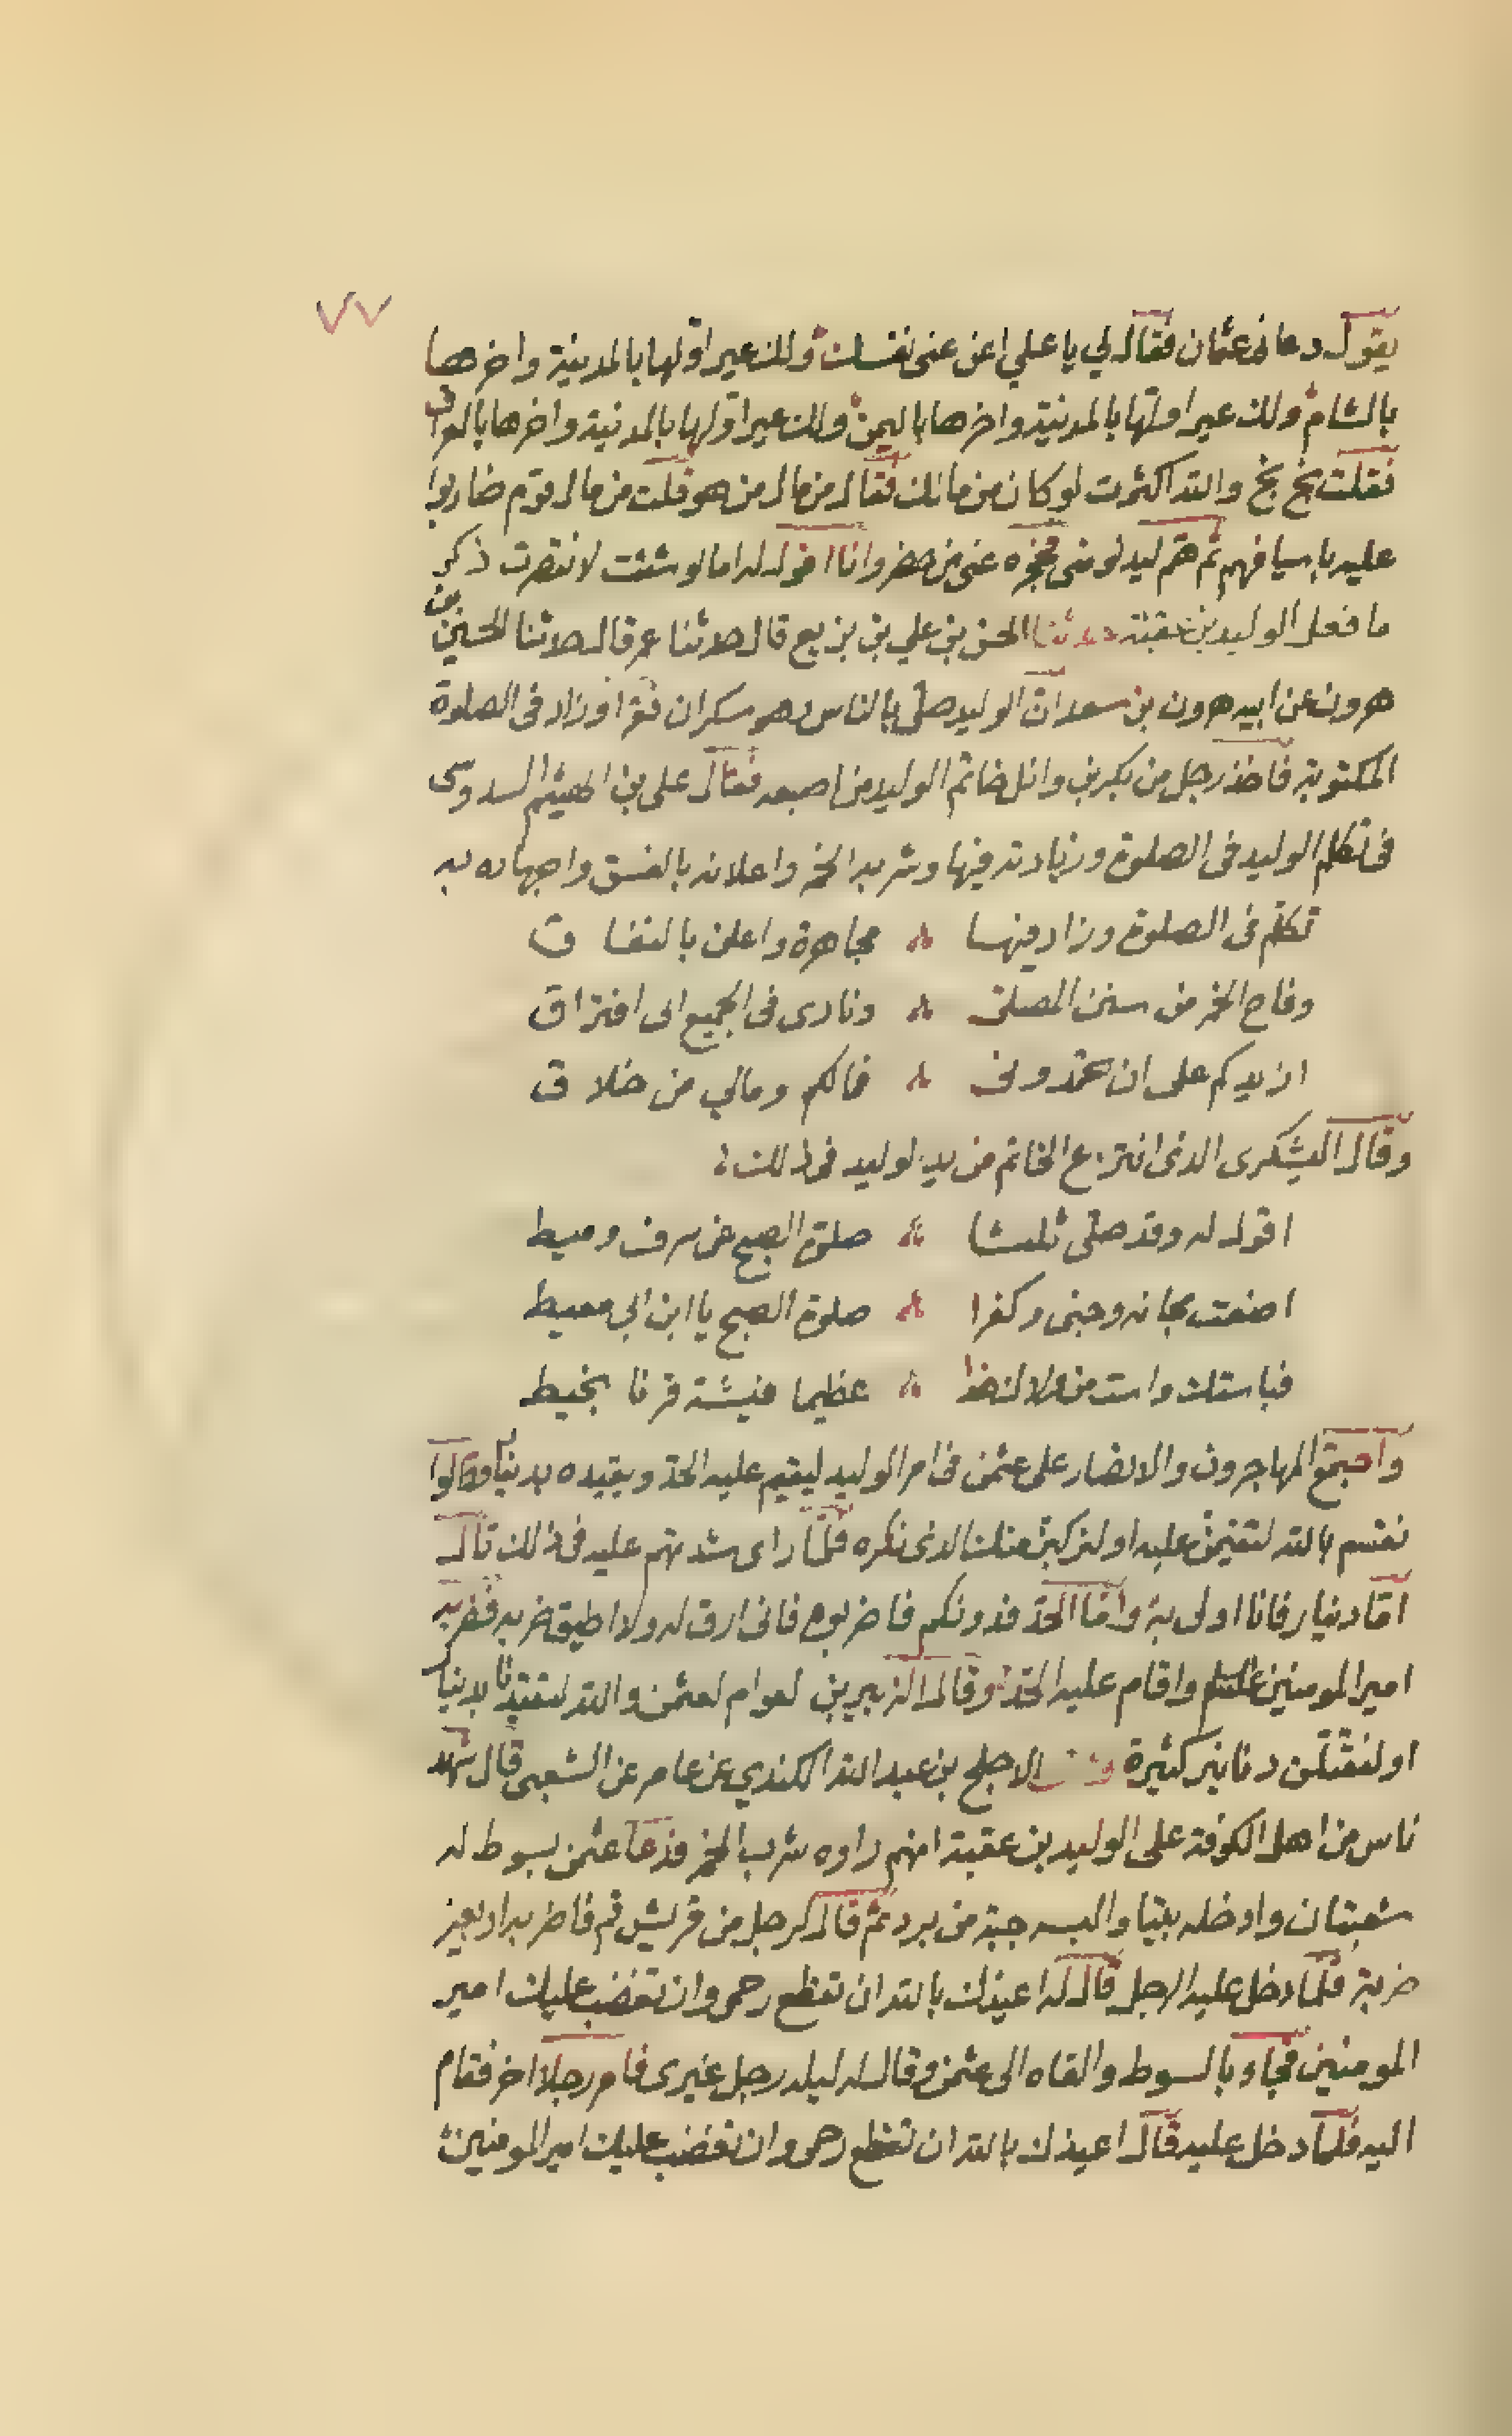 ٧٧
يقول دعانى عثمان فقال لي يا علي اغن عنى نفسك ولك عير اولها بالمدينة واخرها
بالشام ولك عير اولها بالمدينة واخرها باليمن ولك عير اولها بالمدينة واخرها بالعراق
فقلت بخ بخ والله اكثرت لو كان من مالك فقال من مال من هو قلت من مال قوم ضاربوا
عليه باسيافهم ثم هم ليدلو منى فحجزه عنى من حضر وانا اقول له اما لو شئت لانتصرت ذكر
ما فعل الوليد بن عقبة حدثنا الحسن بن علي بن بزيع قال حدثنا عمر قال حدثنا الحسين بن
هرون عن ابيه هرون بن سعد ان الوليد صلى بالناس وهو سكران فقرا وزاد فى الصلوة
المكتوبة فاخذ رجل من بكر بن وائل خاتم الوليد من اصبعه فقال على بن الهيثم السدوسى
فى تكلم الوليد فى الصلوة وزيادته فيها وشربه الخمر واعلانه بالفسق واجهاره به
تكلم فى الصلوة وزاد فيها مجاهرة واعلن بالنفاق
وفاح الخمر من سنن المصلى ونادى فى الجميع الى افتراق
ازيدكم على ان تحمدونى فمالكم ومالي من خلاق
وقال اليشكرى الذى انتزع الخاتم من يد لوليد فى ذلك
اقول له وقد صلى ثلثا صلوة الصبح عن سرف وميط
اضعت مجانه وخبنى وكفرا صلوة الصبح يا ابن ابي معيط
فباستك واست من ولاك عظيما فيشة قرنا بخيط
واجتمع المهاجرون والانصار على عثمن فى امر الوليد ليقيم عليه الحد ويقيده بدينار وقالوا
نقسم بالله لتقيمن عليه او لنركبن منك الذى نكره فلما راى شدتهم عليه فى ذلك قال
اما دينار فانا اولى به واما الحد فدونكم فاضربوه فانى ارق له ولا اطيق ضربه فضربه
امير المومنين علسلم واقام عليه الحد وقال الزبير بن لعوام لعثمن والله لتقيدنا بدينار
او لنقتلن دنانير كثيرة الاجلح بن عبد الله الكندي عن عامر عن الشعبى قال شهد
ناس من اهل الكوفة على الوليد بن عقبة انهم راوه شرب الخمر فدعا عثمن بسوط له
شعبتان وادخله بيتا والبسه جبة من برد ثم قال لرجل من قريش قم فاضربه اربعين
ضربة فلما دخل عليه الرجل قال له اعيذك بالله ان تقطع رحمى وان تغضب عليك امير
المومنين فجاء بالسوط والقاه الى عثمن وقال له ليله رجل غيرى فامر رجلا اخر فقام
اليه فلما دخل عليه قال اعيذك بالله ان تقطع رحمى وان تغضب عليك امير المومنين